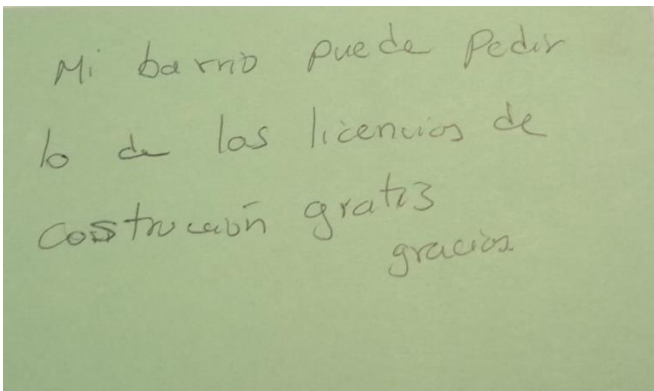 Mi barrio puede Pedir
lo de las licencias de
costrucción gratis
gracias